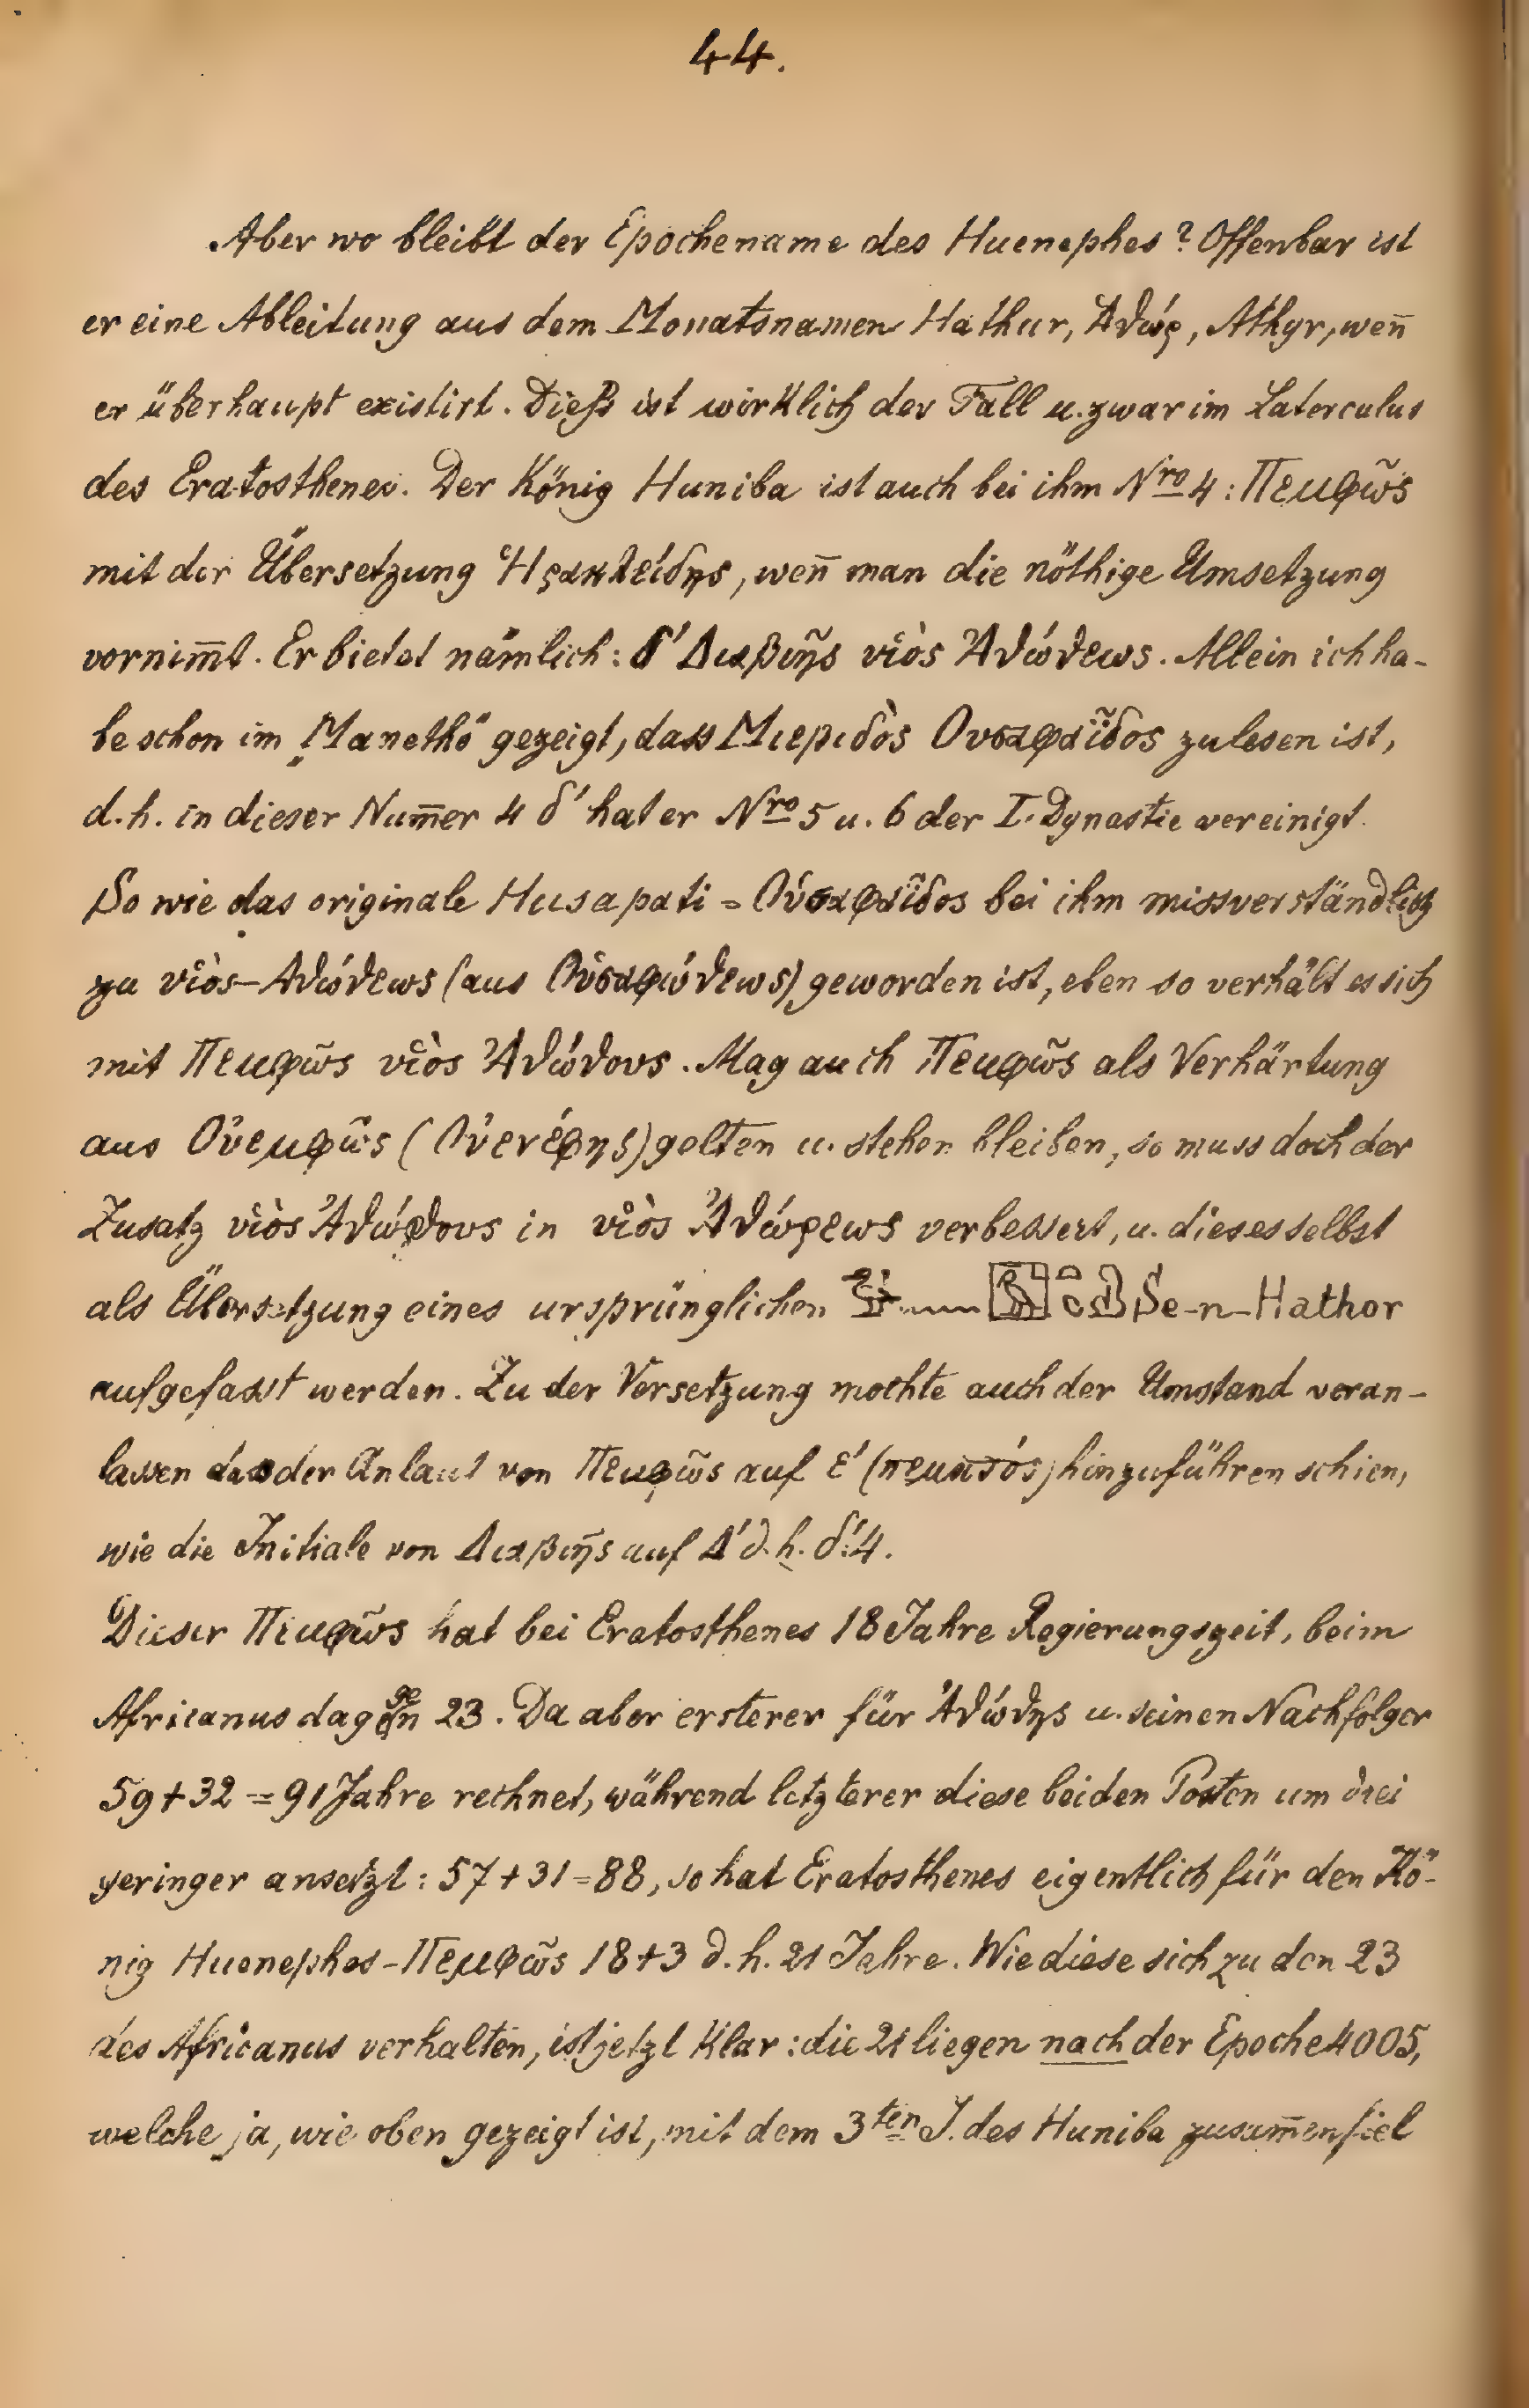 44.
Aber wo bleibt der Epochename des Huenephes? Offenbar ist
er eine Ableitung aus dem Monatsnamen Hathur, Ἀθώρ, Athyr, wen̄
er überhaupt existirt. Dieß ist wirklich der Fall u. zwar im Laterculus
des Eratosthenes. Der König Huniba ist auch bei ihm Nro 4: Πεμφῶς
mit der Übersetzung Ἡρακλείδης, wen̄ man die nöthige Umsetzung
vornim̄t. Er bietet nämlich: δ' Διαβιῆς υἱὸς Ἀθώθεως. Allein ich ha-
be schon im „Manetho“ gezeigt, dass Μιεριδὸς Ουσαφαΐδος zu lesen ist,
d. h. in dieser Num̄er 4 δ' hat er Nro 5 u. 6 der I. Dynastie vereinigt.
So wie das originale Husapati = Οὐσαφαΐδος bei ihm missverständlich
zu υἱὸς-Ἀθώθεως (aus Οὐσαφώθεως) geworden ist, eben so verhält es sich
mit Πεμφῶς υἱὸς Ἀθώθους. Mag auch Πεμφῶς als Verhärtung
aus Οὐεμφῶς (Οὐενέφης) gelten u. stehen bleiben, so muss doch der
Zusatz υἱὸς Ἀθώθους in υἱὸς Ἀθώρεως verbessert, u. dieses selbst
als Übersetzung eines ursprünglichen Se-n-Hathor
aufgefasst werden. Zu der Versetzung mochte auch der Umstand veran-
lassen dass der Anlaut von Πεμφῶς auf ε' (πεμπτός) hinzuführen schien,
wie die Initiale von Διαβιῆς auf Δ' d. h. δ': 4.
Dieser Πεμφῶς hat bei Eratosthenes 18 Jahre Regierungszeit, beim
Africanus dagegen 23. Da aber ersterer für Ἀθώθης u. seinen Nachfolger
59 + 32 = 91 Jahre rechnet, während letzterer diese beiden Posten um drei
geringer ansetzt: 57 + 31 = 88, so hat Eratosthenes eigentlich für den Kö-
nig Huenephes-Πεμφῶς 18 + 3 d. h. 21 Jahre. Wie diese sich zu den 23
des Africanus verhalten, ist jetzt klar: die 21 liegen nach der Epoche 4005,
welche ja, wie oben gezeigt ist, mit dem 3ten J. des Huniba zusam̄enfiel